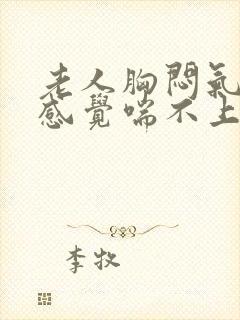 老人胸悶氣
感覺喘不上
李牧